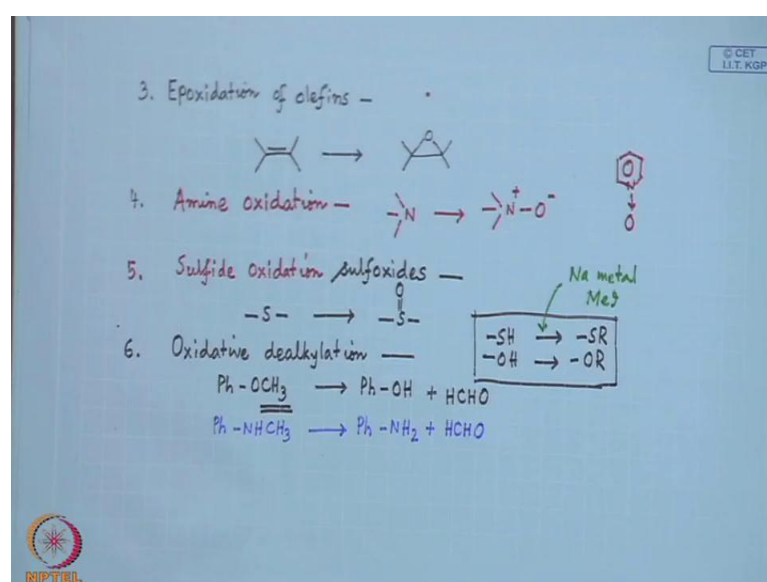 © CET
I.I.T. KGP
3. Epoxidation of olefins –
O
4. Amine oxidation – N → N⁺–O⁻
N
O
5. Sulfide oxidation sulfoxides —
O
–S– → –S–
Na metal
MeI
–SH → –SR
–OH → –OR
6. Oxidative dealkylation —
Ph–OCH₃ → Ph–OH + HCHO
Ph–NHCH₃ → Ph–NH₂ + HCHO
NPTEL